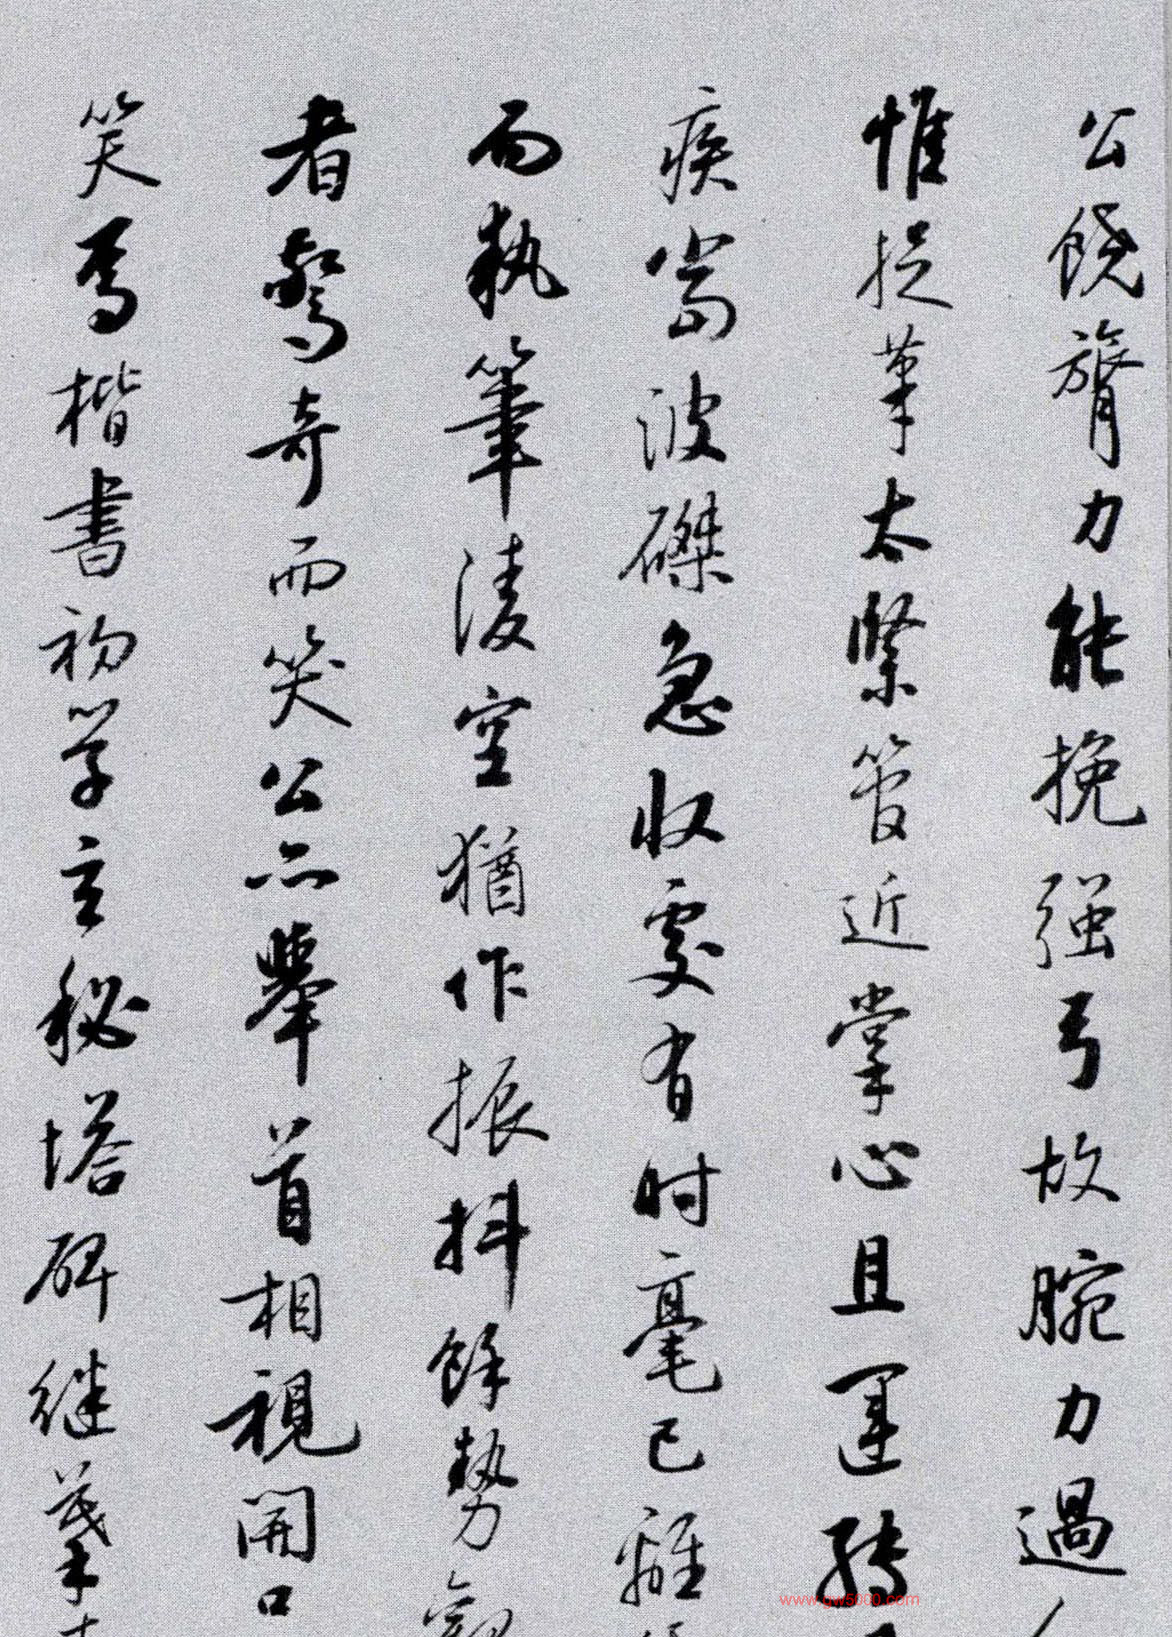 公饒膂力能挽强弓故腕力過人
惟捉筆太緊管近掌心且運轉
疾當波磔急收處有时毫已離
而執筆淩空猶作振抖餘勢觀
者驚奇而笑公亦舉首相視開口
笑焉楷書初学玄秘塔碑继摹
www.gw5000.com